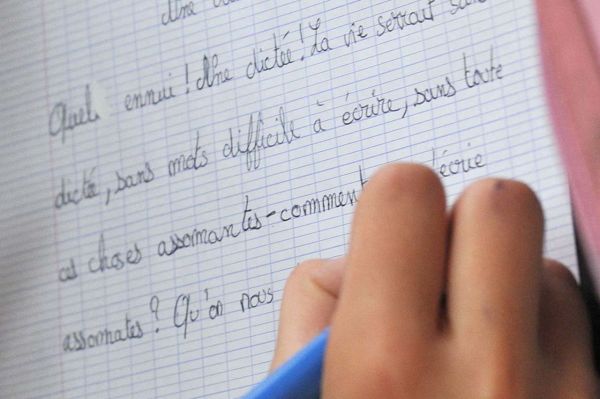 Une
Quel ennui ! Une dictée ! La vie serrait sans
dictée, sans mots difficile à écrire, sans toute
ces choses assomantes - comment écrie
assomates ? Qu'on nous